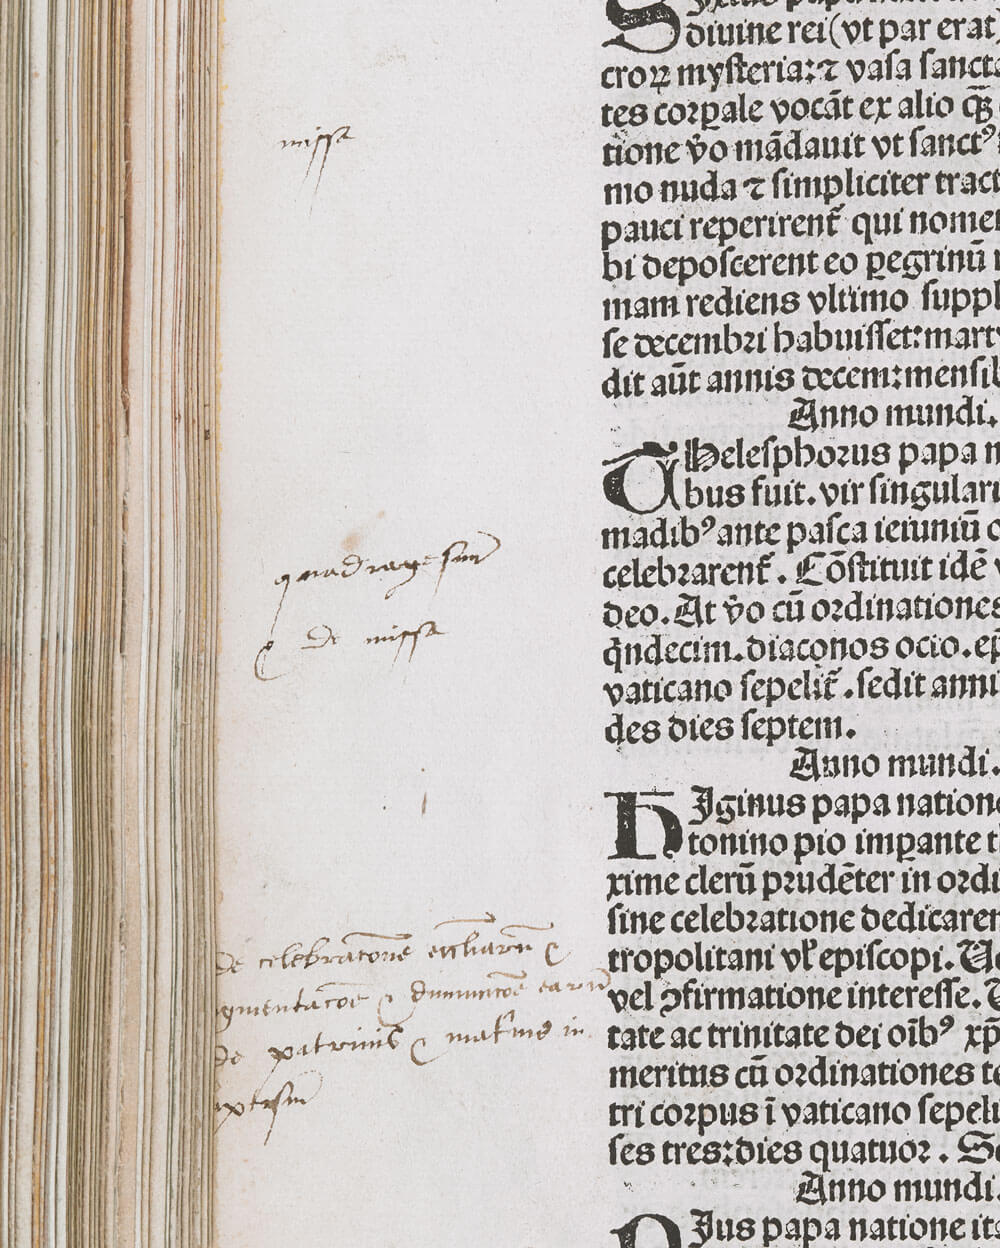 missa
quadragesim
& de missa
de celebratione eccliarũ &
gmentacõe & diminucõe earũ
de patrinis & matrinis in
aptism
Sixtus papa nation
diuine rei (vt par erat)
croꝝ mysteria: ⁊ vasa sancta
tes coꝛꝑale vocãt ex alio qꝫ
tione v̾o mãdauit vt sanctꝰ
mo nuda ⁊ simpliciter tract
pauci reperirent̃ qui nomen
bi deposcerent eo ꝑegrinũ
mam rediens vltimo suppl
se decembꝛi habuisset: mart
dit aũt annis decem: mensib
Anno mundi.
THelesphoꝛus papa n
bus fuit. vir singulari
madibꝰ ante pasca ieiuniũ c
celebꝛarent̃. Cõstituit idẽ
deo. At v̾o cũ oꝛdinationes
q̃ndecim. diaconos octo. ep̃
vaticano sepelit̃. sedit anni
des dies septem.
Anno mundi.
HIginus papa natione
tonino pio imꝑante t
xime clerũ pꝛudẽter in oꝛdi
sine celebꝛatione dedicaren
tropolitani vl̃ episcopi. Ue
vel ꝯfirmatione interesse. U
tate ac trinitate dei oĩbꝰ xp̃
meritus cũ oꝛdinationes te
tri coꝛpus ĩ vaticano sepeli
ses tres: dies quatuoꝛ. Se
Anno mundi.
PIus papa natione ita